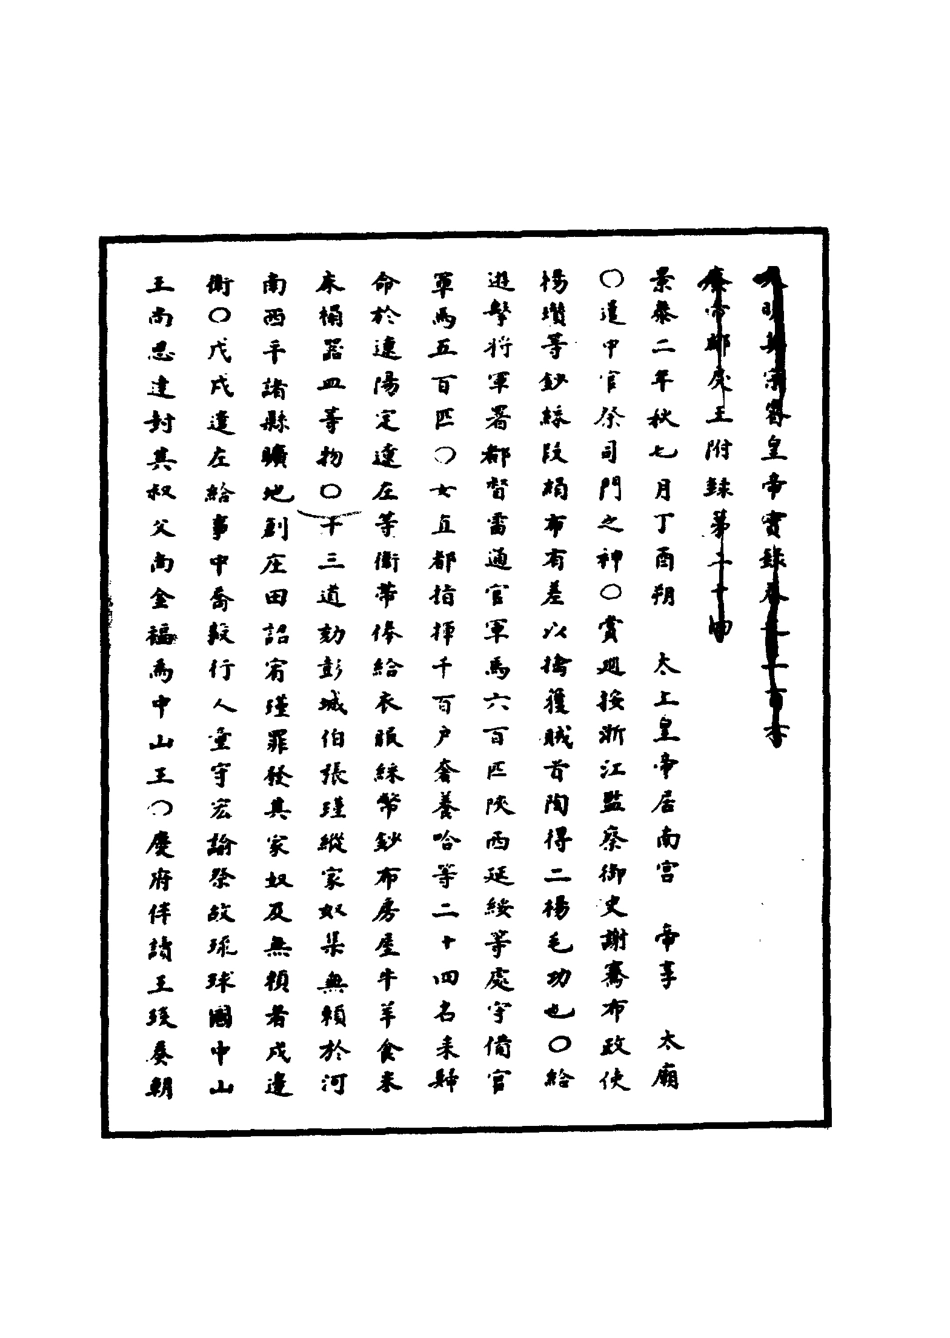 大明英宗睿皇帝實錄卷之二百六
廢帝郕戾王附錄第二十四
景泰二年秋七月丁酉朔　太上皇帝居南宮　帝享　太廟
○遣中官祭司門之神○賞廵按浙江監察御史謝騫布政使
楊瓚等鈔綵段絹布有差以擒獲賊首陶得二楊毛功也○給
遊擊將軍署都督雷通官軍馬六百匹陝西延綏等處守備官
軍馬五百匹○女直都指揮千百戶奢養哈等二十四名來歸
命於遼陽定遼左等衛帶俸給衣服綵幣鈔布房屋牛羊食米
床桶器皿等物○十三道劾彭城伯張瑾縱家奴集無賴於河
南西平諸縣曠地創庄田詔宥瑾罪發其家奴及無賴者戍邊
衛○戊戌遣左給事中喬毅行人童守宏諭祭故琉球國中山
王尚思達封其叔父尚金福為中山王○慶府伴讀王琰奏朝